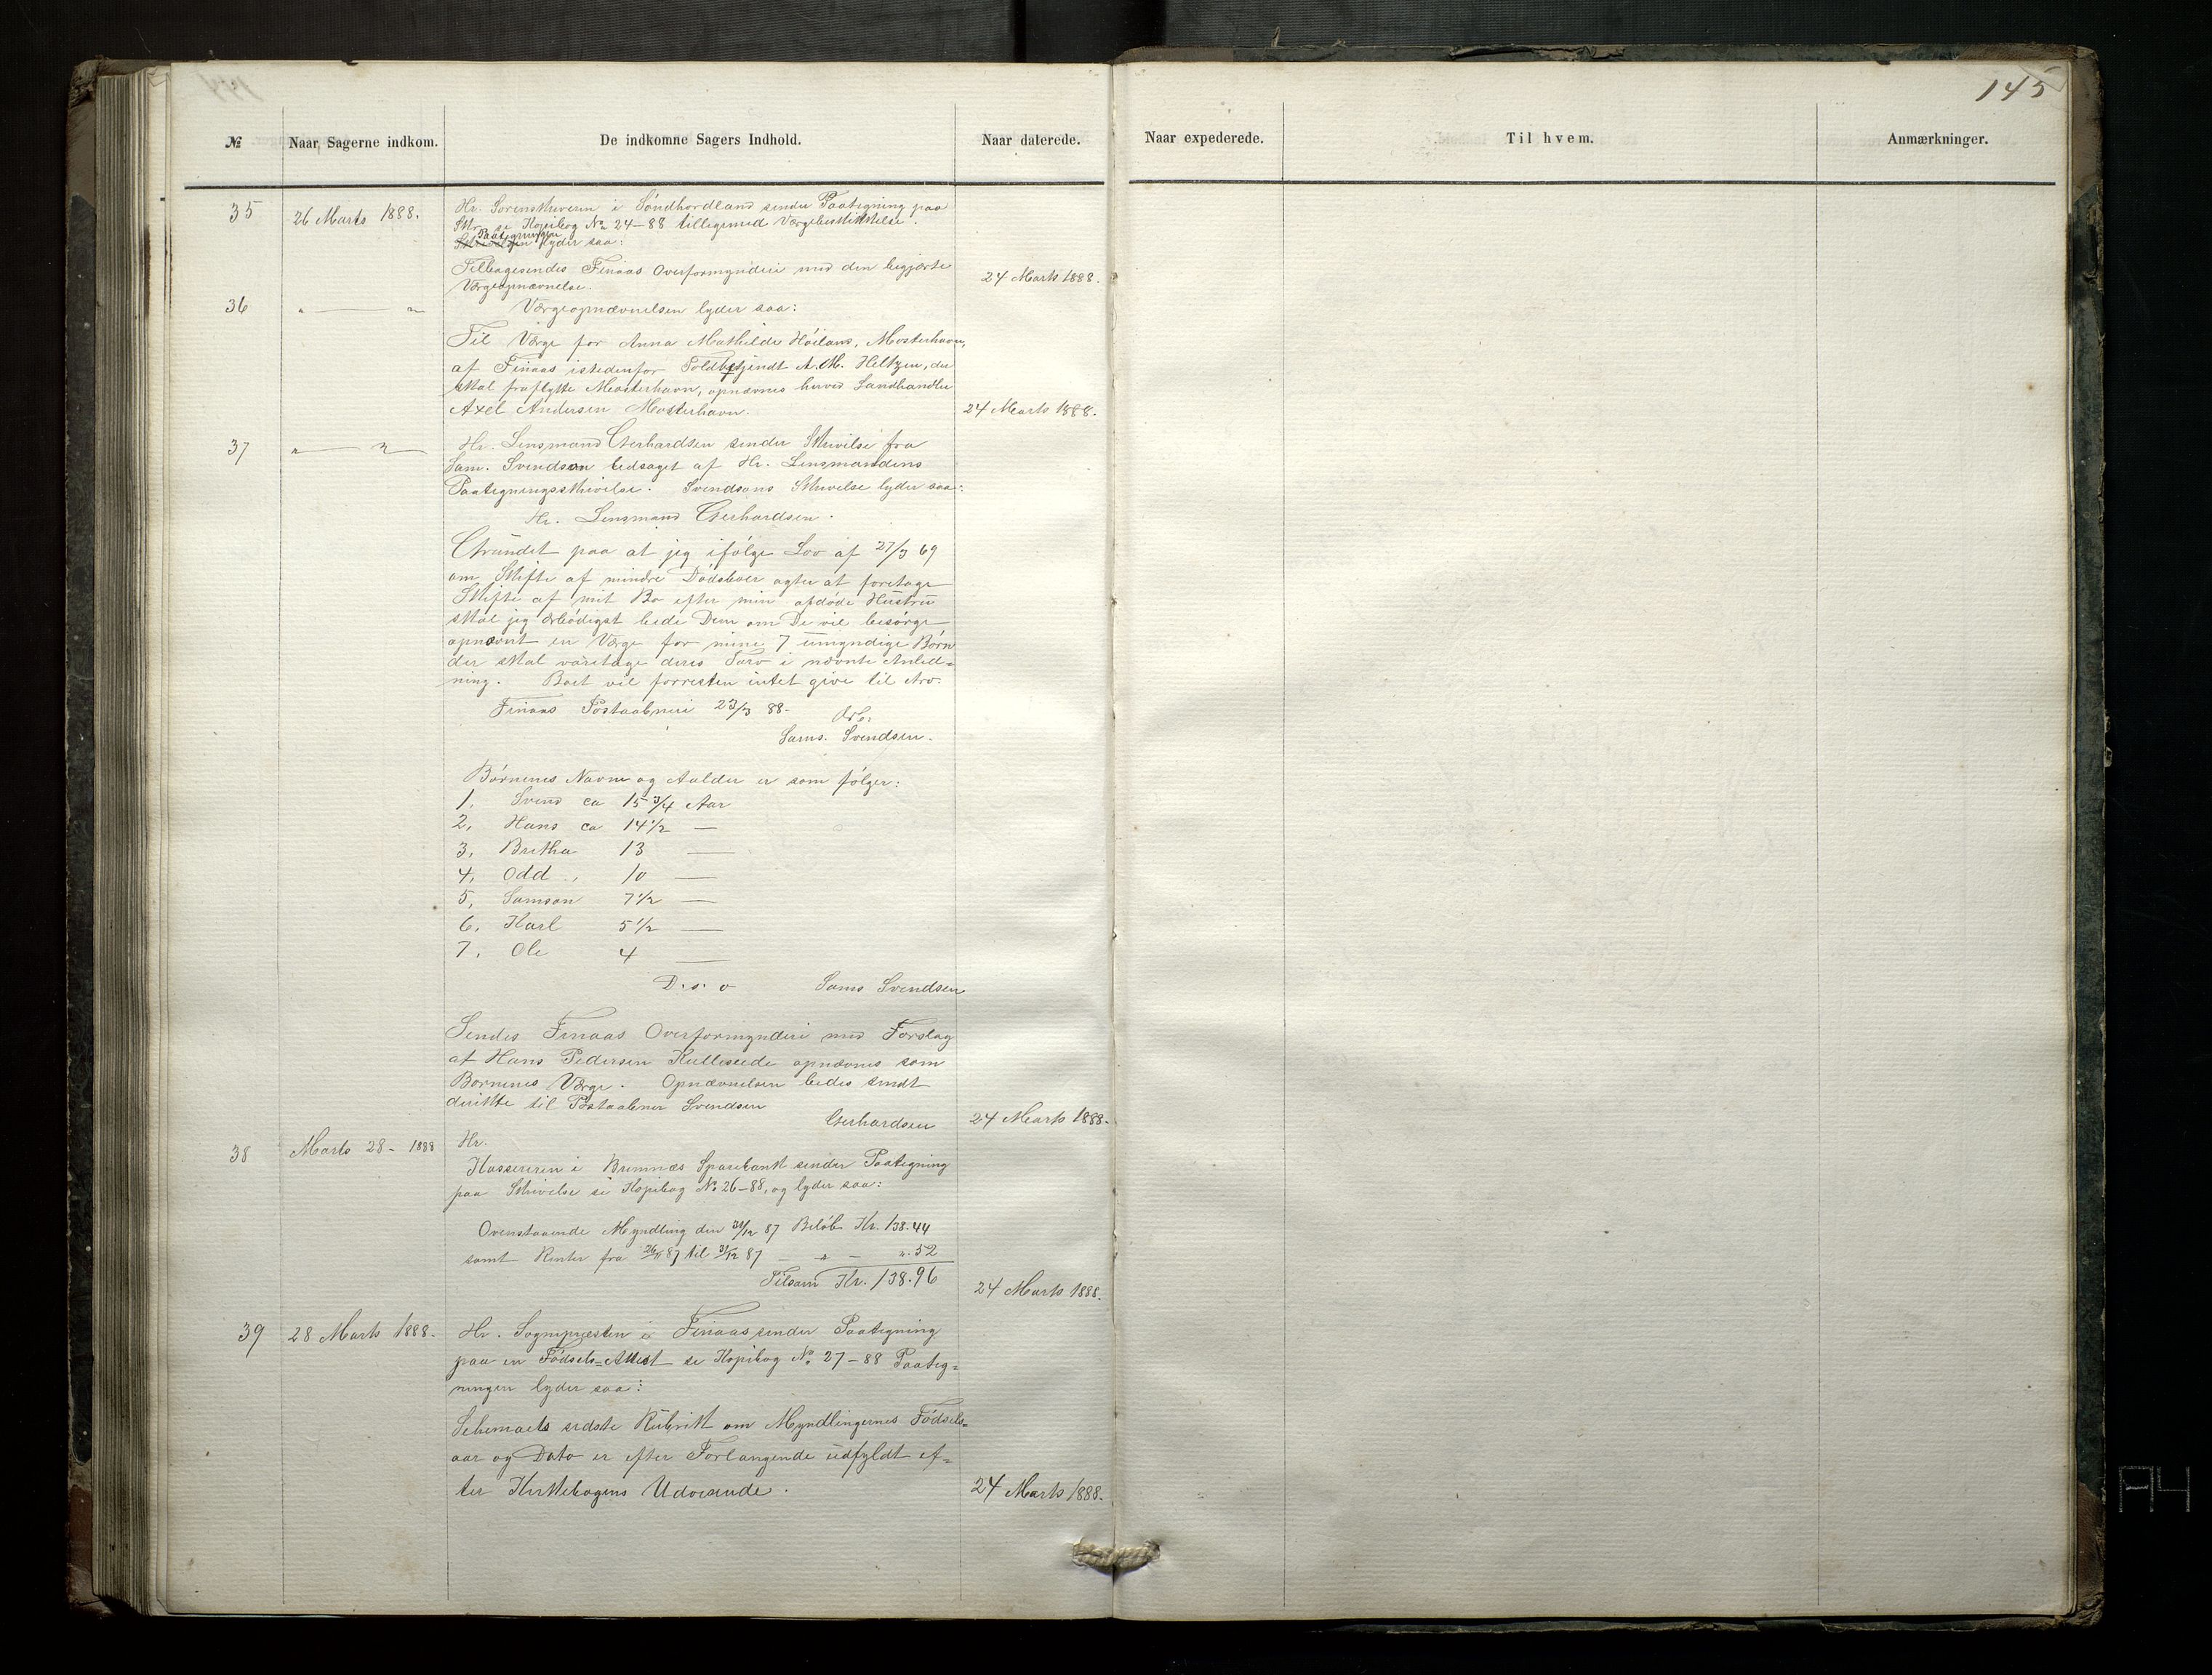 145
№ Naar Sagerne indkom. De indkomne Sagers Indhold. Naar daterede. Naar expederede. Til hvem. Anmærkninger.
35 26 Marts 1888. Hr. Sorenskriveren i Söndhordland sender Paategning paa
Skr. se Kopibog No 24-88 tilligemed Værgebeskikkelse.
Paategningen
Skrivelsen lyder saa:
Tilbagesendes Finaas Overformynderi med den begjærte
Værgeopnævnelse. 24 Marts 1888.
36 " — " Værgeopnævnelsen lyder saa:
Til Værge for Anna Mathilde Höiland, Mosterhavn,
af Finaas istedenfor Toldbetjendt A. M. Heltzen, der
skal fraflytte Mosterhavn, opnævnes herved Landhandler
Axel Andersen Mosterhavn. 24 Marts 1888.
37 " — " Hr. Lensmand Gerhardsen sender Skrivelse fra
Sam. Svendsen ledsaget af Hr. Lensmandens
Paategningsskrivelse. Svendsens Skrivelse lyder saa:
Hr. Lensmand Gerhardsen.
Grundet paa at jeg ifölge Lov af 27/3 69
om Skifte af mindre Dödsboer agter at foretage
Skifte af mit Bo efter min afdöde Hustru
skal jeg ærbödigst bede Dem om De vil besörge
opnævnt en Værge for mine 7 umyndige Börn
der skal varetage deres Tarv i nævnte Anled=
ning. Boet vil forresten intet give til Arv.
Finaas Postaabneri 23/3 88.
Ærb.
Sams. Svendsen.
Börnenes Navne og Alder er som fölger:
1, Svend ca 15 3/4 Aar
2, Hans ca 14 1/2 —
3, Britha 13 —
4, Odd " 10 —
5, Samson 7 1/2 —
6, Karl 5 1/2 —
7, Ole 4 —
D. s. o Sams Svendsen
Sendes Finaas Overformynderi med Forslag
at Hans Pedersen Kulleseide opnævnes som
Bornenes Værge. Opnævnelsen bedes sendt
direkte til Postaabner Svendsen
Gerhardsen 24 Marts 1888.
38 Marts 28 - 1888 Hr.
Kassereren i Bremnæs Sparebank sender Paategning
paa Skrivelse se Kopibog No 26-88, og lyder saa:
Ovenstaaende Myndling den 31/12 87 Belöb Kr. 138.44
samt Renter fra 26/11 87 til 31/12 87 — " — ". 52
Tilsam Kr. 138.96 24 Marts 1888.
39 28 Marts 1888. Hr. Sognepræsten i Finaas sender Paategning
paa en Födsels=Attest se Kopibog No. 27-88 Paateg=
ningen lyder saa:
Schemaets sidste Rubrik om Myndlingernes Födsels=
aar og Dato er efter Forlangende udfyldt ef=
ter Kirkebogens Udvisende. 24 Marts 1888.